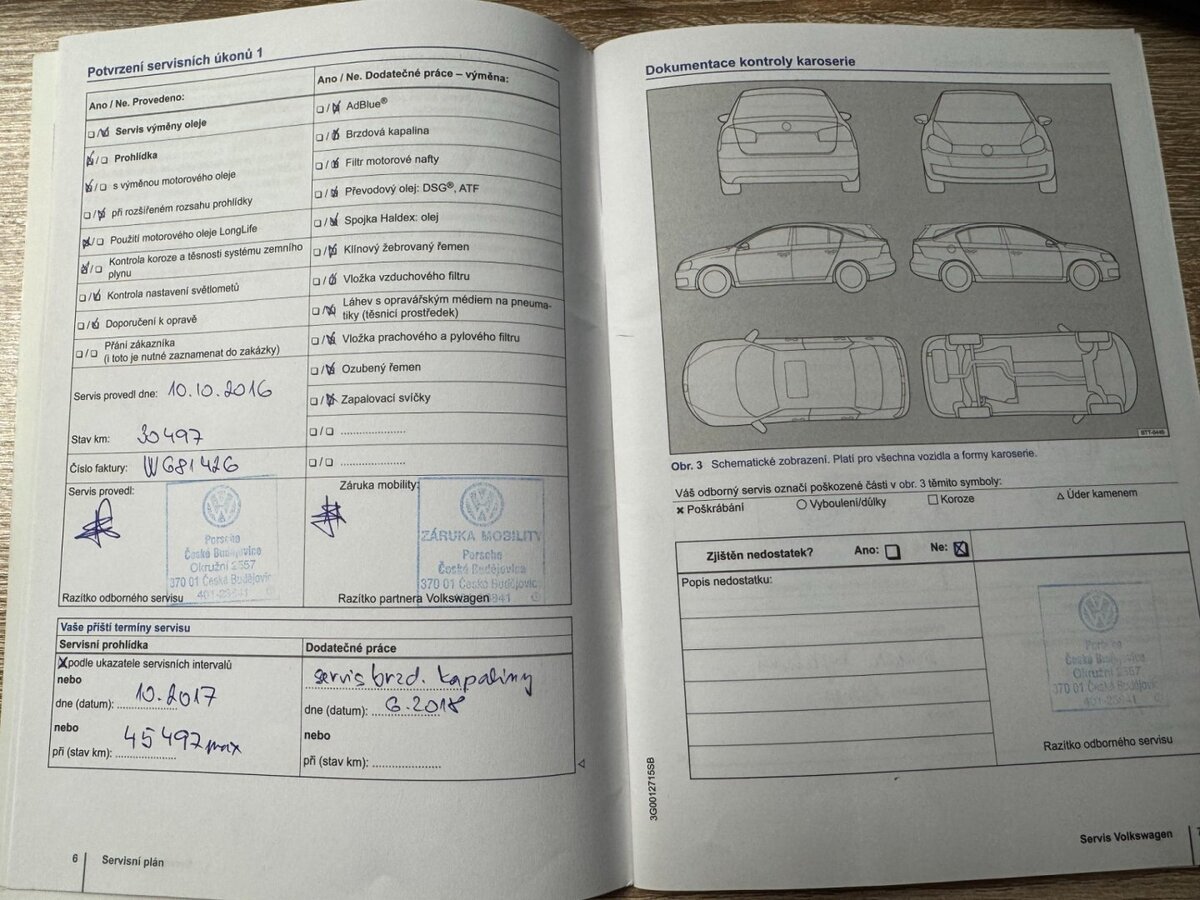 Potvrzení servisních úkonů 1
Ano / Ne. Provedeno:
❏ / ❏ Servis výměny oleje
❏ / ❏ Prohlídka
❏ / ❏ s výměnou motorového oleje
❏ / ❏ při rozšířeném rozsahu prohlídky
❏ / ❏ Použití motorového oleje LongLife
❏ / ❏ Kontrola koroze a těsnosti systému zemního
plynu
❏ / ❏ Kontrola nastavení světlometů
❏ / ❏ Doporučení k opravě
❏ / ❏ Přání zákazníka
(i toto je nutné zaznamenat do zakázky)
Servis provedl dne: 10.10.2016
Stav km: 30497
Číslo faktury: WG81426
Servis provedl:
Porsche
České Budějovice
Okružní 2557
370 01 České Budějovic
Razítko odborného servisu
Ano / Ne. Dodatečné práce – výměna:
❏ / ❏ AdBlue®
❏ / ❏ Brzdová kapalina
❏ / ❏ Filtr motorové nafty
❏ / ❏ Převodový olej: DSG®, ATF
❏ / ❏ Spojka Haldex: olej
❏ / ❏ Klínový žebrovaný řemen
❏ / ❏ Vložka vzduchového filtru
❏ / ❏ Láhev s opravářským médiem na pneuma-
tiky (těsnicí prostředek)
❏ / ❏ Vložka prachového a pylového filtru
❏ / ❏ Ozubený řemen
❏ / ❏ Zapalovací svíčky
❏ / ❏ ......................
❏ / ❏ ......................
Záruka mobility:
ZÁRUKA MOBILITY
Porsche
České Budějovice
370 01 České Budějovic
Razítko partnera Volkswagen
Vaše příští termíny servisu
Servisní prohlídka
X podle ukazatele servisních intervalů
nebo
dne (datum): 10.2017
nebo
při (stav km): 45497 max
Dodatečné práce
servis brzd. kapaliny
dne (datum): 6.2018
nebo
při (stav km): ......................
6 Servisní plán
Dokumentace kontroly karoserie
BTT-0449
Obr. 3 Schematické zobrazení. Platí pro všechna vozidla a formy karoserie.
Váš odborný servis označí poškozené části v obr. 3 těmito symboly:
✖ Poškrábání ○ Vyboulení/důlky □ Koroze △ Úder kamenem
Zjištěn nedostatek? Ano: ❏ Ne: ☒
Popis nedostatku:
Porsche
České Budějovice
Okružní 2557
370 01 České Budějovic
Razítko odborného servisu
3G0012715SB
Servis Volkswagen 7